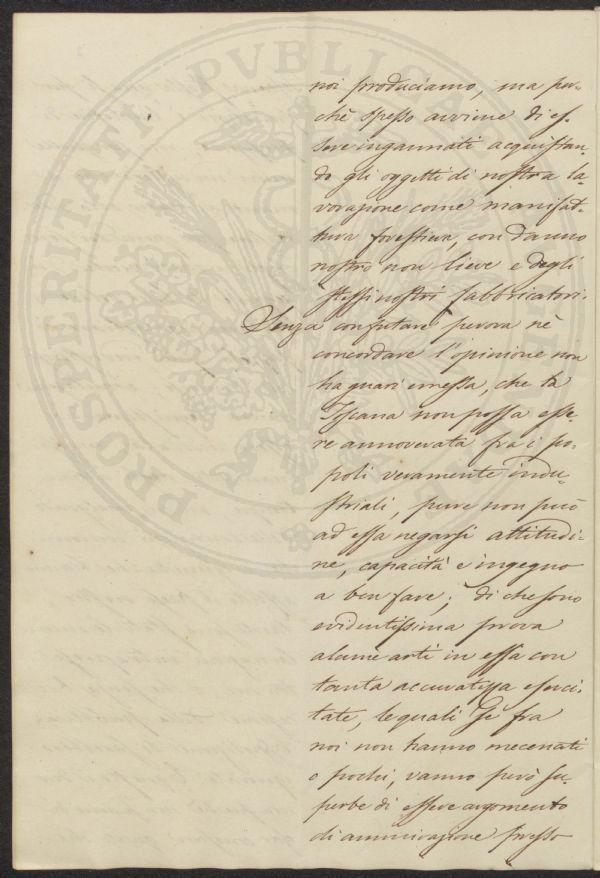 noi produciamo, ma per-
chè spesso avviene di es-
sere ingannati acquistan-
do gli oggetti di nostra la-
vorazione come manifat-
tura forestiera, con danno
nostro non lieve e degli
stessi nostri fabbricatori.
Senza confutare perora nè
concordare l'opinione non
ha guari emessa, che la
Toscana non possa esse-
re annoverata fra i po-
poli veramente indu-
striali, pure non può
ad essa negarsi attitudi-
ne, capacità e ingegno
a ben fare; di che sono
evidentissima prova
alcune arti in essa con
tanta accuratezza eserci-
tate, le quali se fra
noi non hanno mecenati
o pochi, vanno però su-
perbe di essere argomento
di ammirazione presso
PROSPERITATI PVBLICAE